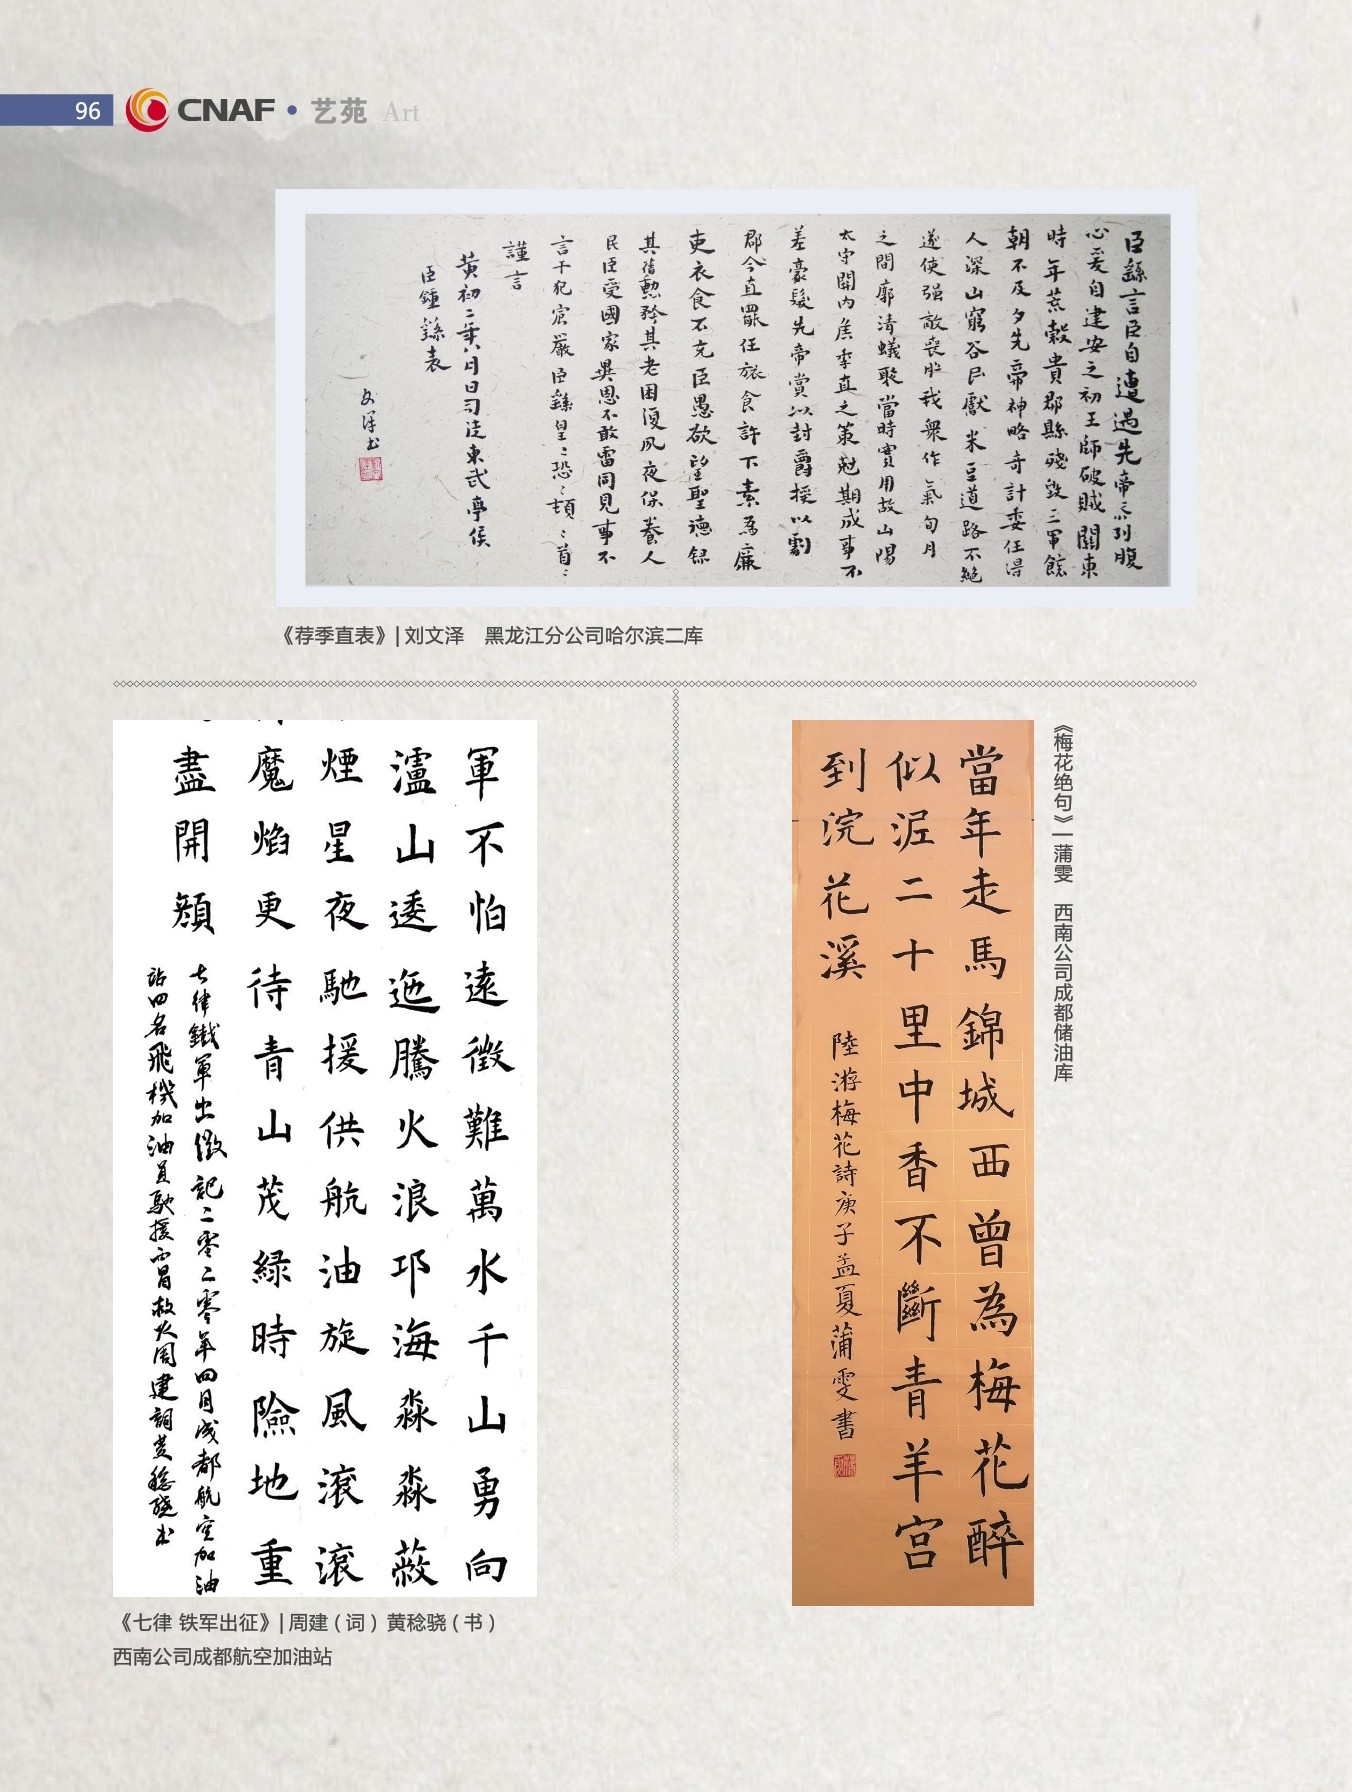 96
CNAF·艺苑 Art
臣繇言臣自遭遇先帝忝列腹
心爰自建安之初王師破賊關東
時年荒穀貴郡縣殘毀三軍餽
朝不及夕先帝神略奇計委任得
人深山窮谷民獻米豆道路不絕
遂使强敵喪胆我衆作氣旬月
之間廓清蟻聚當時實用故山陽
太守關内侯季直之策尅期成事不
差豪髮先帝賞以封爵授以劇
郡今直罷任旅食許下素為廉
吏衣食不充臣愚欲望聖德録
其舊勲矜其老困復夙夜保養人
民臣受國家異恩不敢雷同見事不
言干犯宸嚴臣繇皇〻恐〻頓〻首〻
謹言
黄初二年八月日司徒東武亭侯
臣鍾繇表
文澤书
《荐季直表》| 刘文泽　黑龙江分公司哈尔滨二库
軍不怕遠徵難萬水千山勇向
瀘山逶迤騰火浪邛海淼淼蔽
煙星夜馳援供航油旋風滾滾
魔焰更待青山茂緑時險地重
盡開顔
七律鐵軍出徵記二零二零年四月成都航空加油
站四名飛機加油員馳援西昌救火周建詞黄稔驍书
《七律 铁军出征》| 周建（词）黄稔骁（书）
西南公司成都航空加油站
當年走馬錦城西曾為梅花醉
似泥二十里中香不斷青羊宫
到浣花溪
陸游梅花詩庚子孟夏蒲雯書
《梅花绝句》| 蒲雯　西南公司成都储油库